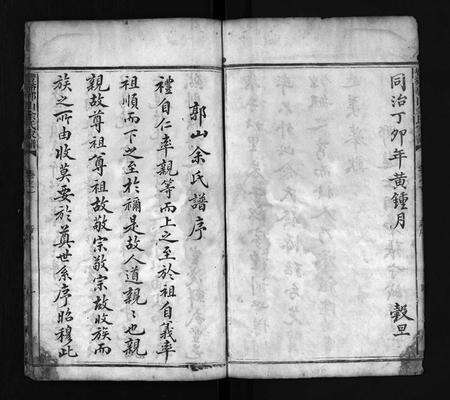 同治丁卯年黃鍾月　穀旦
郭山余氏譜序
禮自仁率親等而上之至於祖自義率
祖順而下之至於禰是故人道親〻也親
親故尊祖尊祖故敬宗敬宗故收族而
族之所由收莫要於奠世系序昭穆此